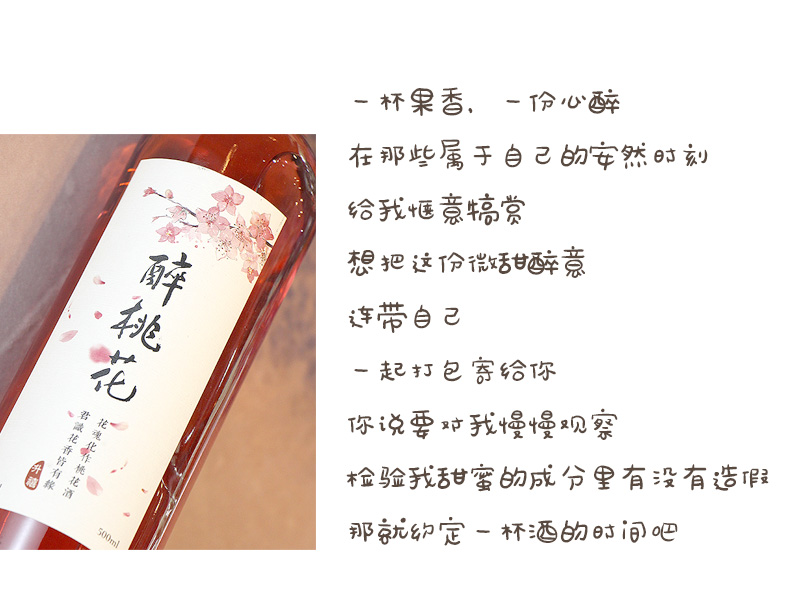 一杯果香，一份心醉
在那些属于自己的安然时刻
给我惬意犒赏
想把这份微甜醉意
连带自己
一起打包寄给你
你说要对我慢慢观察
检验我甜蜜的成分里有没有造假
那就约定一杯酒的时间吧
醉桃花
花魂化作桃花酒
君識花香皆有緣
升禧
500ml